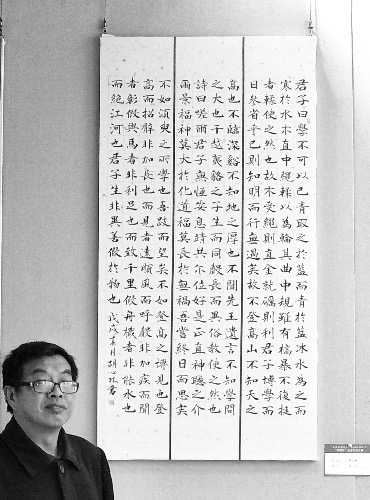 君子曰學不可以已青取之於藍而青於藍冰水為之而
寒於水木直中繩輮以為輪其曲中規雖有槁暴不復挺
者輮使之然也故木受繩則直金就礪則利君子博學而
日參省乎己則知明而行無過矣故不登高山不知天之
高也不臨深谿不知地之厚也不聞先王遺言不知學問
之大也干越夷貉之子生而同聲長而異俗教使之然也
詩曰嗟爾君子無恒安息靖共尔位好是正直神聽之介
爾景福神莫大於化道福莫長於無禍吾嘗終日而思矣
不如須臾之所學也吾嘗跂而望矣不如登高之博見也登
高而招臂非加長也而見者遠順風而呼聲非加疾而聞
者彰假輿馬者非利足也而致千里假舟楫者非能水也
而絕江河也君子生非異善假於物也 戊戌月胡書